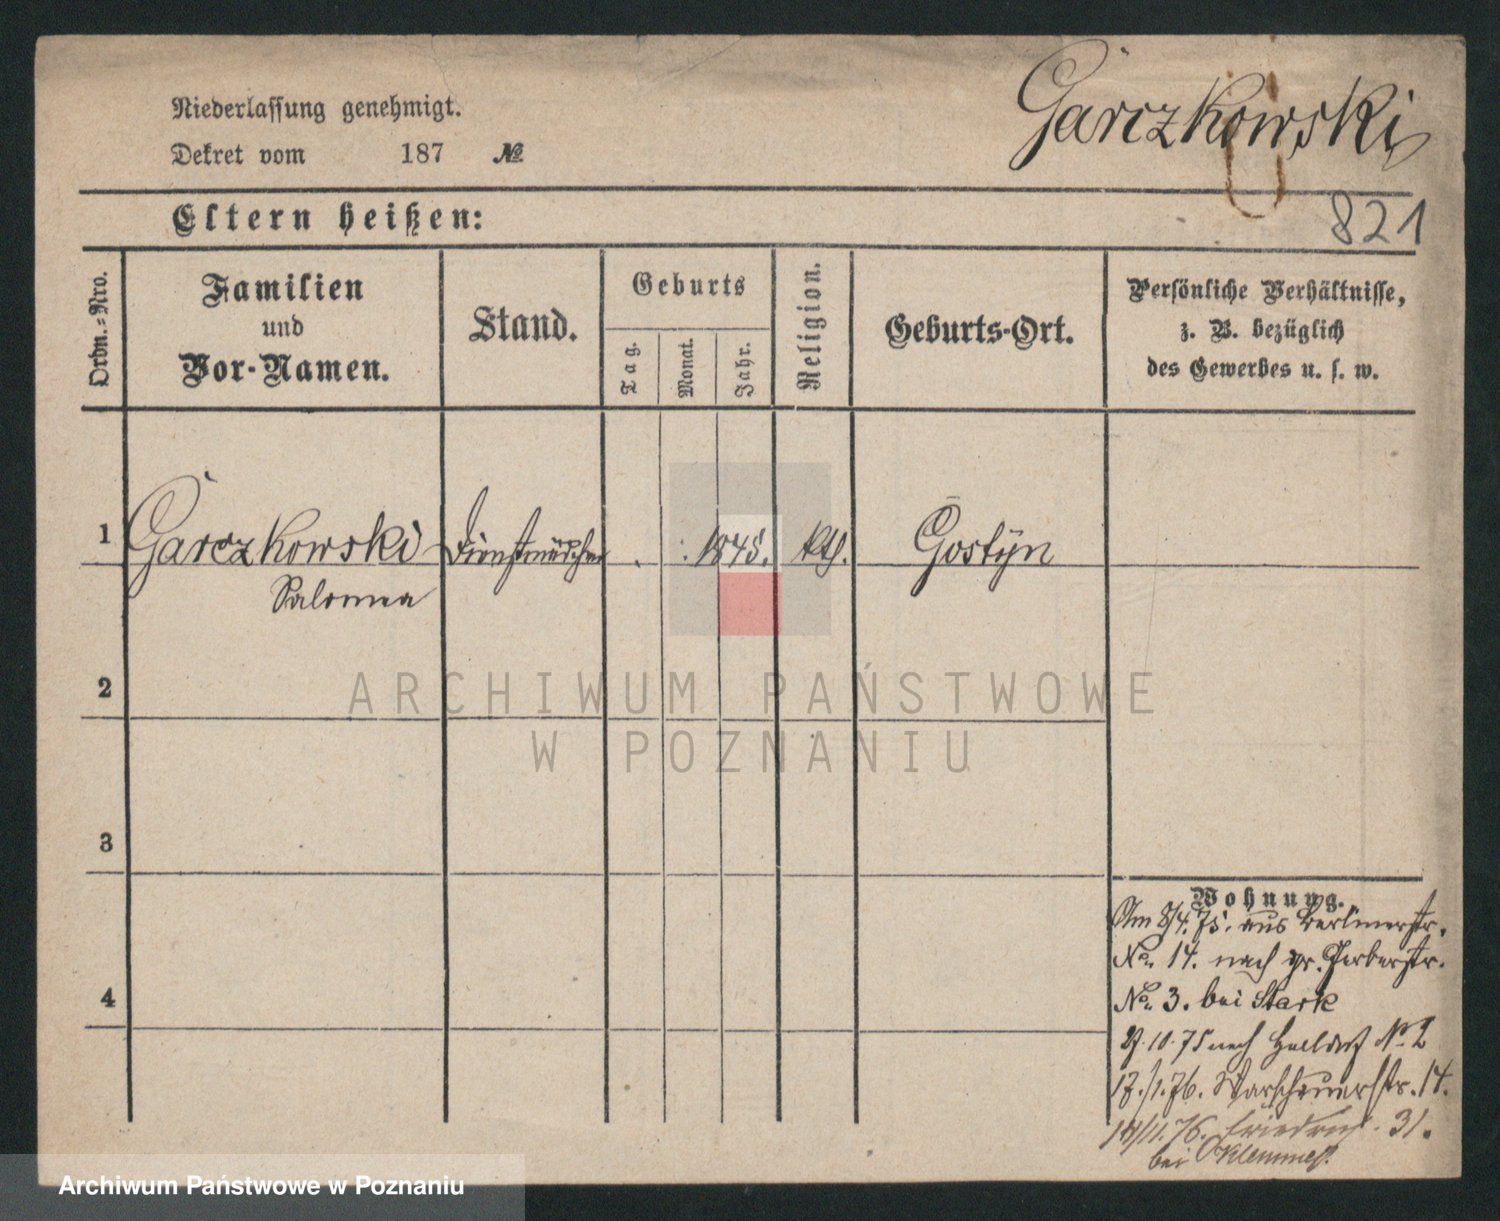 Garczkowski
Niederlassung genehmigt.
Dekret vom 187 №
821
Eltern heißen:
Ordn.-Nro.
Familien
und
Vor-Namen.
Stand.
Geburts
Tag.
Monat.
Jahr.
Religion.
Geburts-Ort.
Persönliche Verhältnisse,
z. B. bezüglich
des Gewerbes u. s. w.
1 Garczkowski Dienstmädchen 1845. kth. Gostÿn
Salomea
2
ARCHIWUM PAŃSTWOWE
W POZNANIU
3
4
Wohnung.
Am 8/4.75. aus Berlinerstr.
No. 14. nach gr. Gerberstr.
No. 3. bei Stark
10.75 nach Halldorf No 2
17./1.76. 14.
14/11.76. Friedrich. 31.
bei
Archiwum Państwowe w Poznaniu